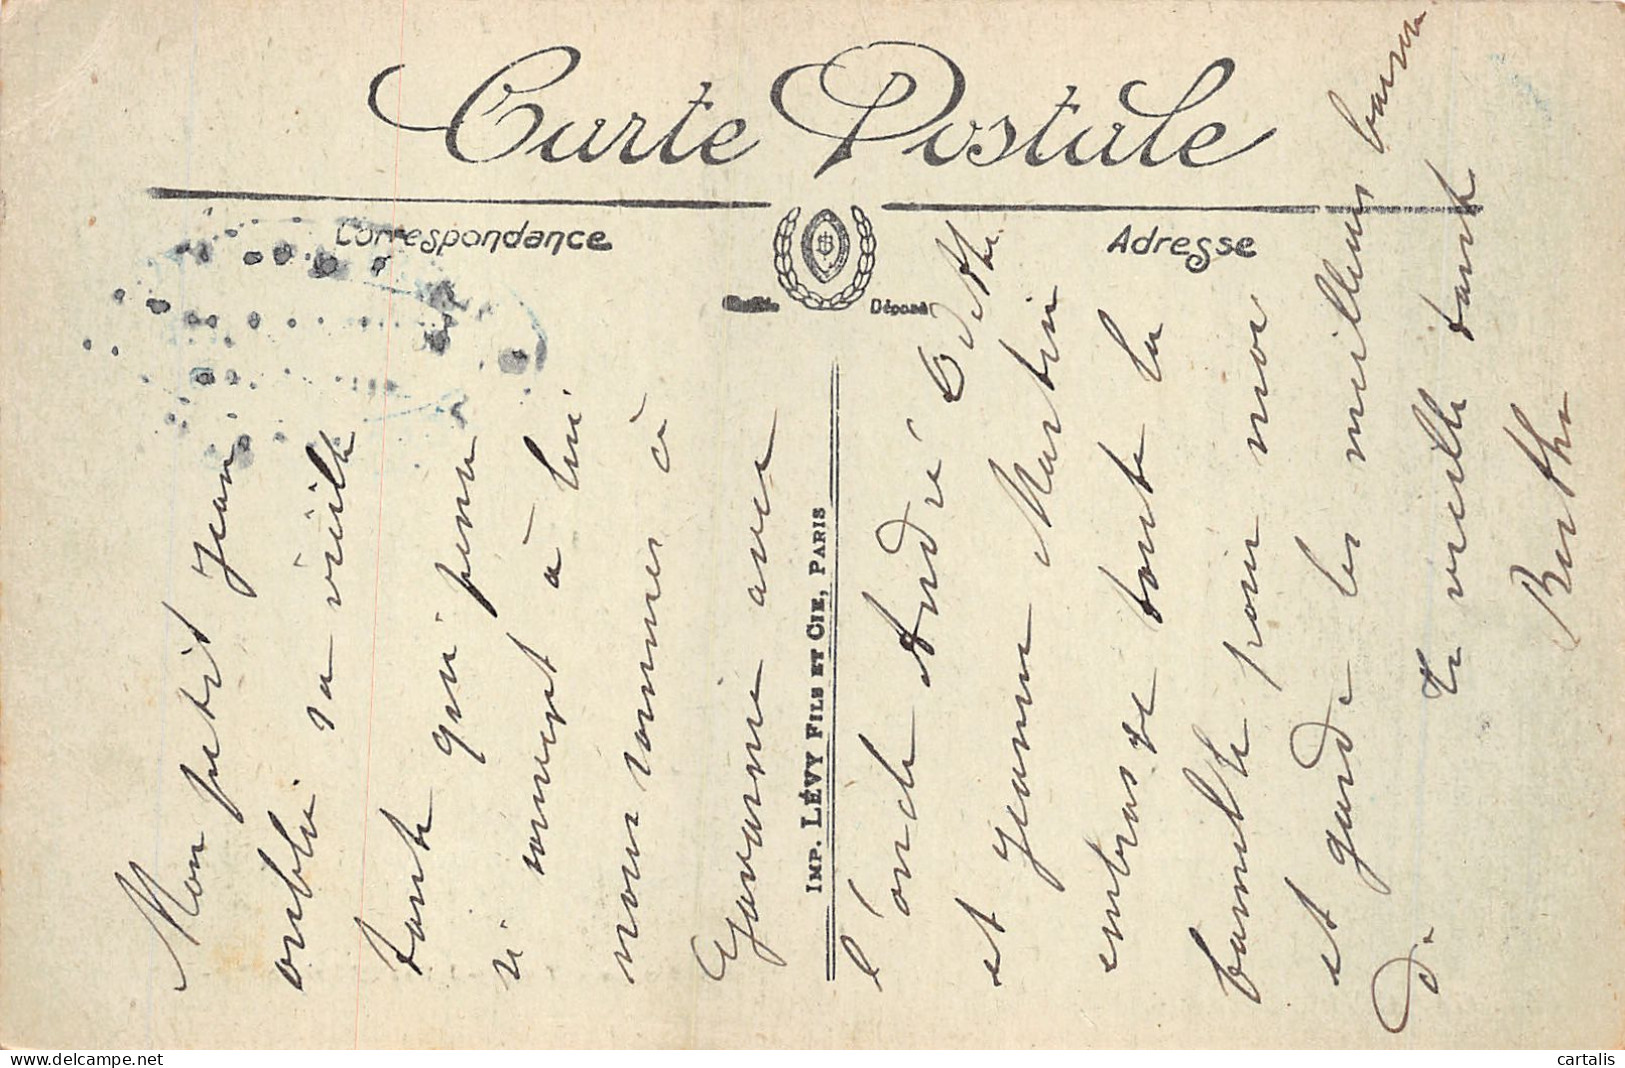 Carte Postale
Correspondance
Adresse
Déposé
IMP. LÉVY FILS ET CIE, PARIS
Mon petit Jean
oublie sa vieille
tante qui pense
si souvent à lui
nous sommes à
avec
l'oncle André Odette
et Jeanne Martin
embrasse toute la
famille pour moi
et garde les meilleurs baisers
de
ta vieille tante
Berthe
cartalis
delcampe.net